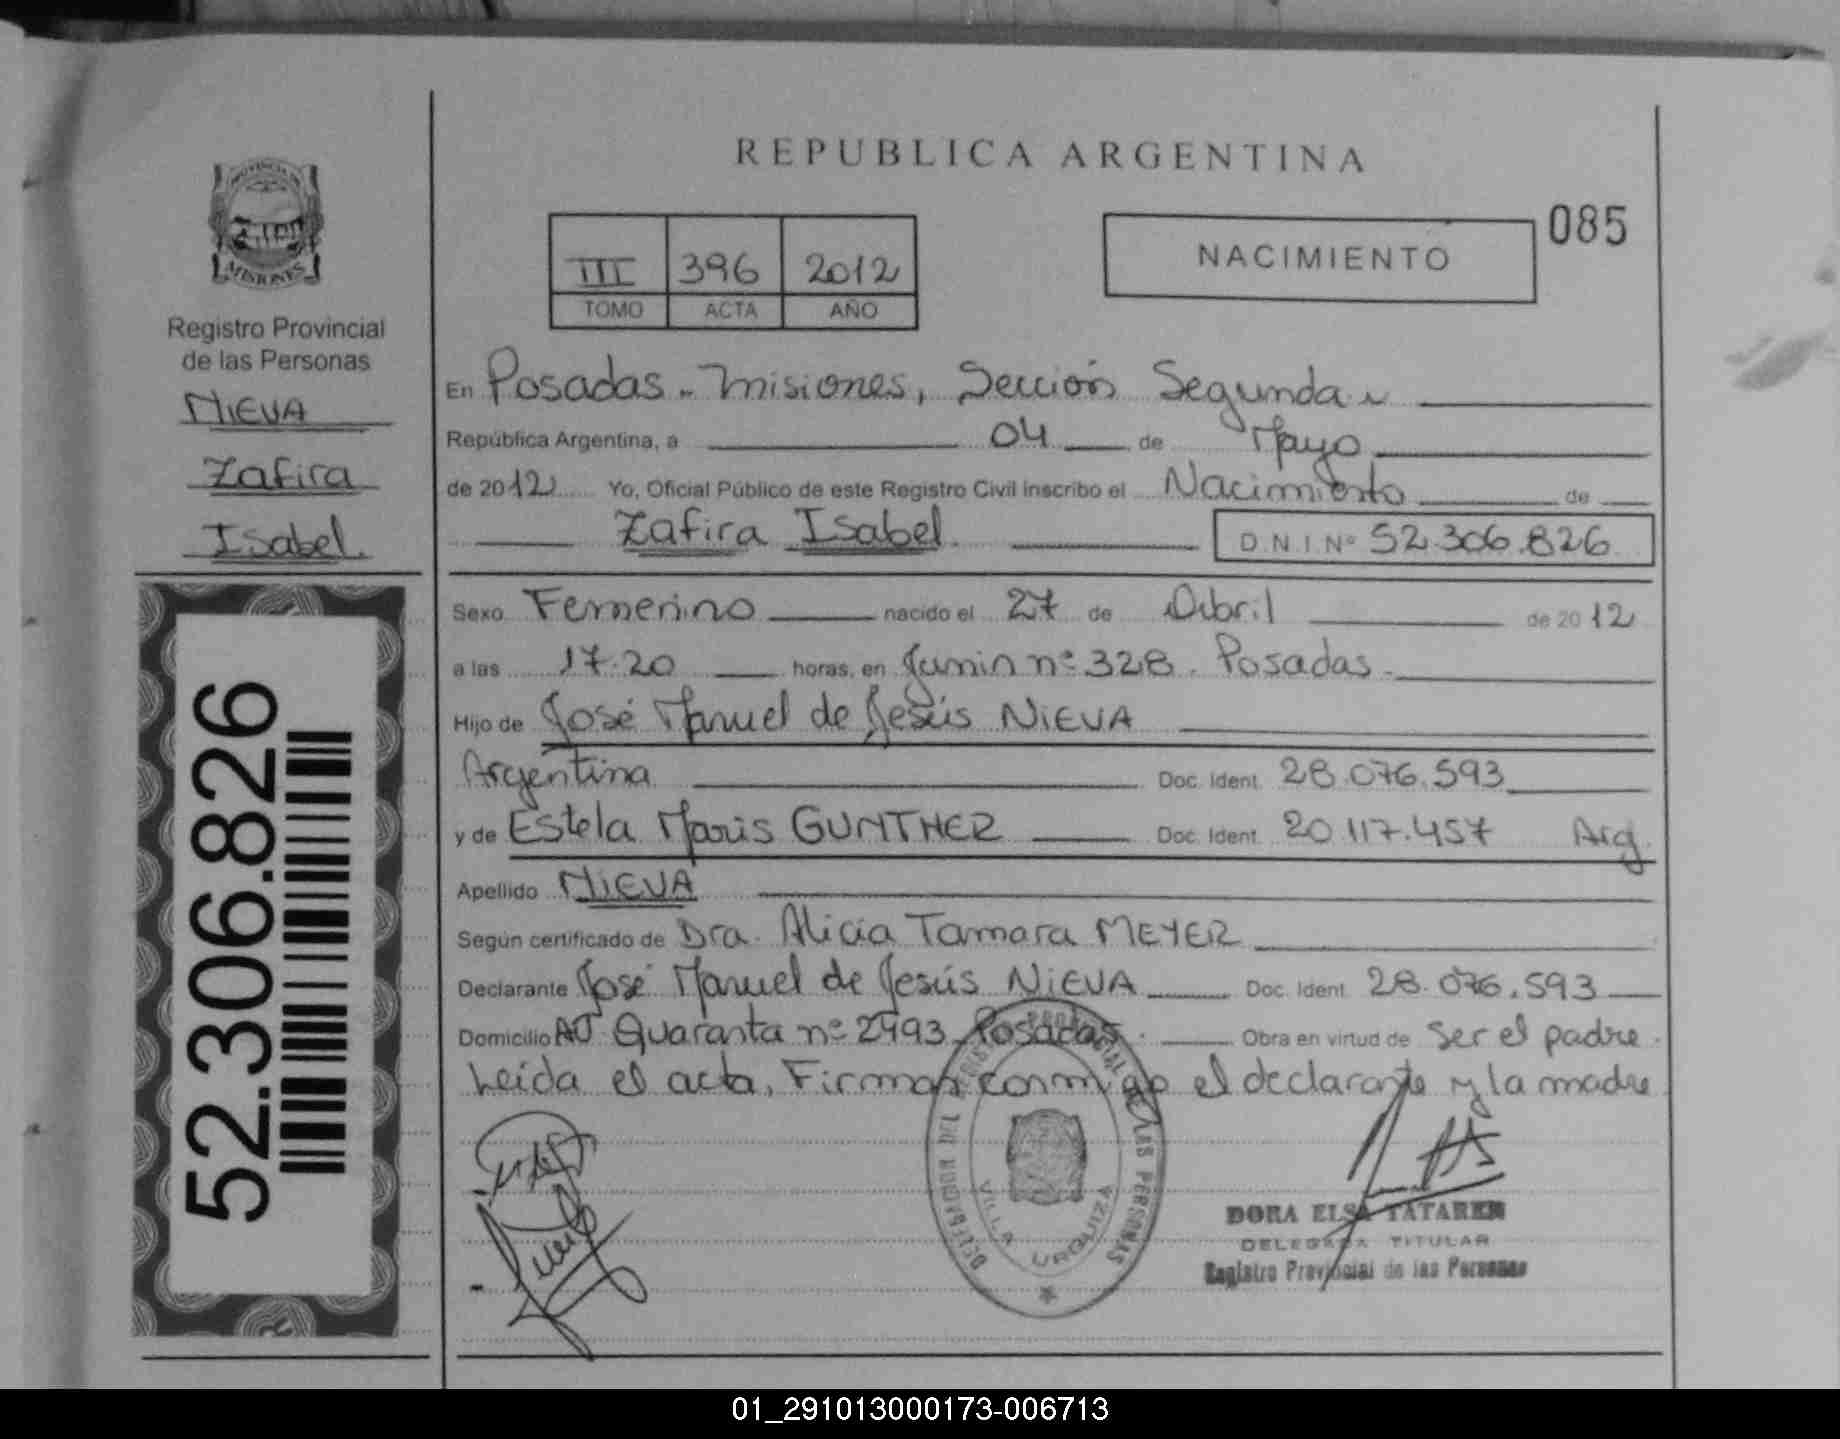 REPUBLICA ARGENTINA
085
NACIMIENTO
III 396 2012
TOMO ACTA AÑO
PROVINCIA DE
MISIONES
Registro Provincial
de las Personas
NIEVA
Zafira
Isabel.
52.306.826
En Posadas - Misiones, Sección Segunda
República Argentina, a 04 de Mayo
de 2012 Yo, Oficial Público de este Registro Civil inscribo el Nacimiento de
Zafira Isabel. D.N.I Nº 52.306.826
Sexo Femenino nacido el 27 de Abril de 2012
a las 17.20 horas, en Junin nº 328. Posadas.
Hijo de José Manuel de Jesús NIEVA
Argentina Doc. Ident. 28.076.593
y de Estela Maris GUNTHER Doc. Ident. 20.117.457 Arg.
Apellido NIEVA
Según certificado de Dra. Alicia Tamara MEYER
Declarante José Manuel de Jesús NIEVA Doc. Ident. 28.076.593
Domicilio Av Quaranta nº 2493 Posadas. Obra en virtud de ser el padre.
Leída el acta, Firman conmigo el declarante y la madre
DELEGADO DEL REGISTRO PROVINCIAL DE LAS PERSONAS
VILLA URQUIZA
DORA ELSA TATAREN
DELEGADA TITULAR
Registro Provincial de las Personas
01_291013000173-006713